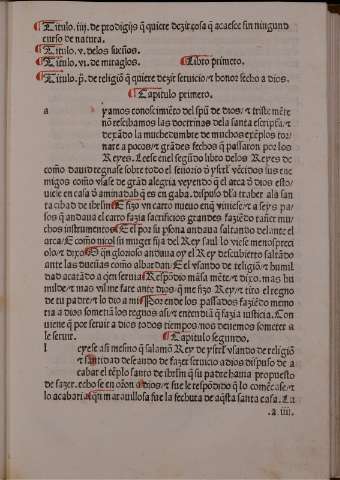 Titulo. iiij. de prodigijs q̃ quiere dezir cosa q̃ acaesce sin ningund
curso de natura.
Titulo. v. de los sueños.
Titulo. vi. de miraglos. Libro primero.
Titulo. p̃. de religiõ q̃ quiere dezir seruicio / honor fecho a dios.
Capitulo primero.
a yamos conoscimiẽto del spũ de dios / τ triste mẽte
nõ rescibamos las doctrinas dela santa escriptã / τ
dexãdo la muchedumbre de muchos exẽplos tor
nate a pocos / τ grãdes fechos q̃ passaron por los
Reyes. Leese en el segũdo libro delos Reyes de
como dauid regnase sobre todo el señorio d̃ ysrl̃ vẽcidos sus ene
migos como vsase de grãd alegria veyendo q̃ el arca d̃ dios esto/
uiese en casa d̃ aminadab q̃ es en gaba. dispuso d̃la traber ala san
ta cibad de ihrlm̃ E fizo vn carro nueuo en q̃ viniese / τ a seys pa/
sos q̃ andaua el carro fazia sacrificios grandes faziẽdo tañer mu/
chos instrumentos E el por su p̃sona andaua saltando delante el
arca E como nicol su muger fija del Rey saul lo viese menospreci
olo / τ dixo O q̃n glorioso andaua oy el Rey descubierto saltãdo
ante las dueñas como albardan E el vsando de religiõ / τ humil
dad acatãdo a q̃en seruia Respõdio mãsa mẽte / τ dixo. mas hu
milde / τ mas vil me fare ante dios q̃ me fizo Rey / τ tiro el regno
de tu padre / τ lo dio a mi Por ende los passados faziẽdo memo
ria a dios sometiã los regnos asi / τ entendiã q̃ fazia iusticia. Con
uiene q̃ por seruir a dios todos tiempos nos deuemos someter a
le seruir. Capitulo segundo.
l eyese asi mesmo q̃ salamõ Rey de ysrl̃ vsando de religiõ
τ santidad deseando de fazer seruicio a dios dispuso de a
cabar el tẽplo santo de ihrlm̃ q̃ su padre hauia propuesto
de fazer. echose en orõn a dios / τ fue le respõdido q̃ lo comẽcase / τ
lo acabari a q̃n marauillosa fue la fechura de aq̃sta santa casa. La
.a. iiii.